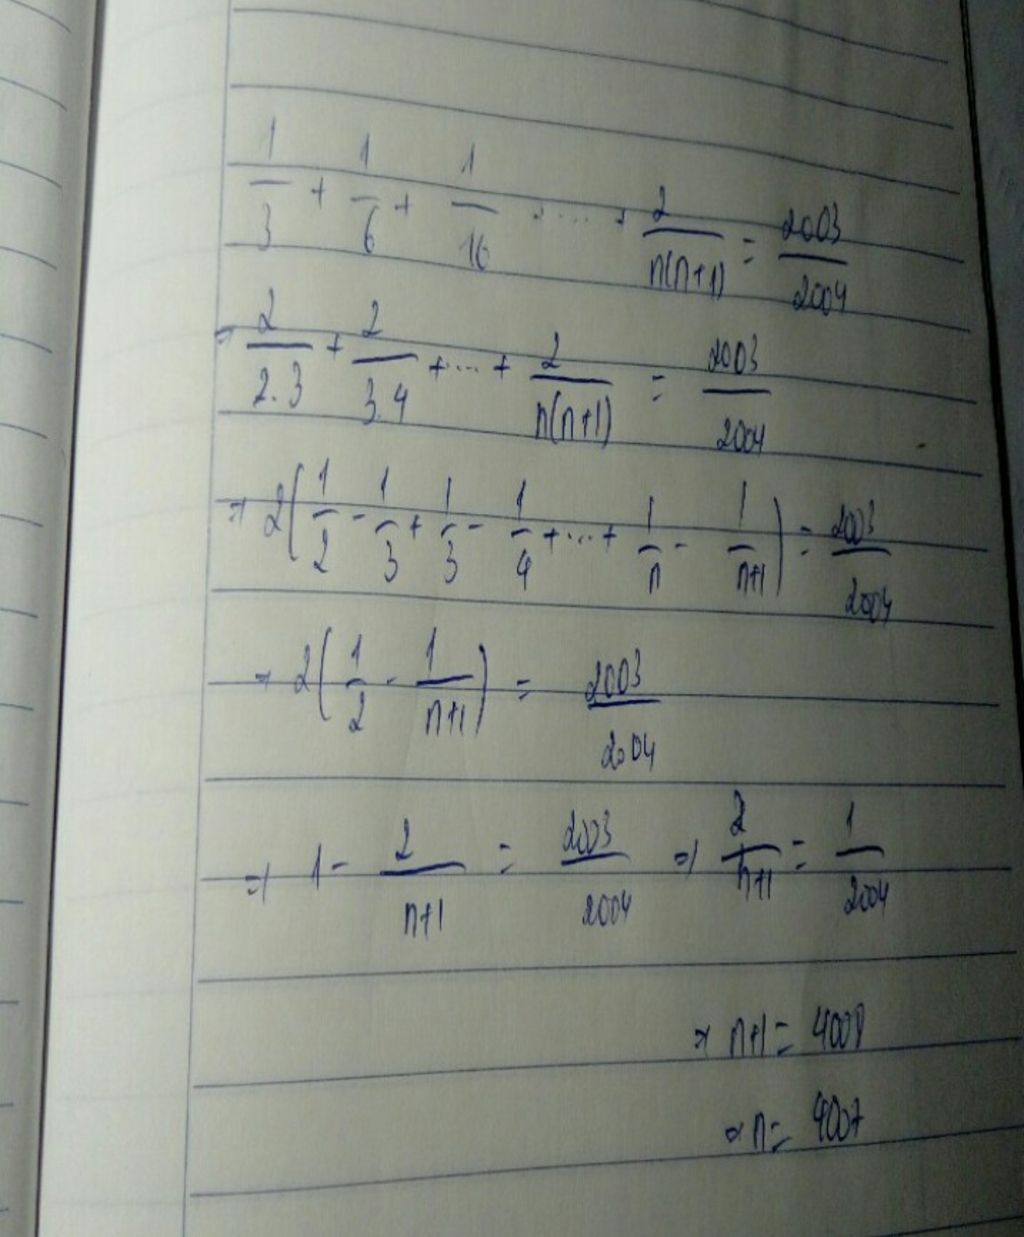 1/3 + 1/6 + 1/16 + .... + 2/n(n+1) = 2003/2004
=> 2/2.3 + 2/3.4 + ... + 2/n(n+1) = 2003/2004
=> 2(1/2 - 1/3 + 1/3 - 1/4 + ... + 1/n - 1/n+1) = 2003/2004
=> 2(1/2 - 1/n+1) = 2003/2004
=> 1 - 2/n+1 = 2003/2004 => 2/n+1 = 1/2004
=> n+1 = 4008
=> n = 4007